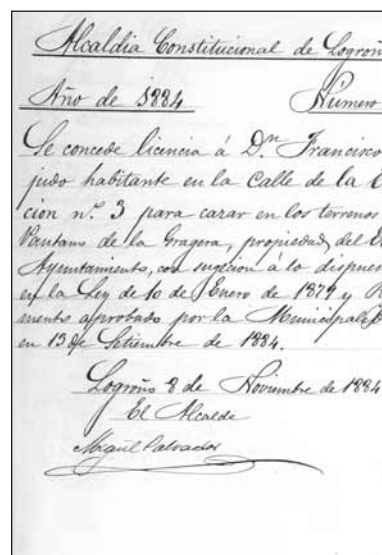 Alcaldia Constitucional de Logroñ
Año de 1884 Número
Se concede licencia á Dn. Francisco
judo habitante en la Calle de la
cion n.º 3 para cazar en los terrenos
Pantano de la Gragera, propiedad, del E
Ayuntamiento, con sugecion á lo dispues
en la Ley de 10 de Enero de 1879 y R
mento aprobado por la Municipal
en 13 de Setiembre de 1884.
Logroño 8 de Noviembre de 1884
El Alcalde
Miguel Salvador